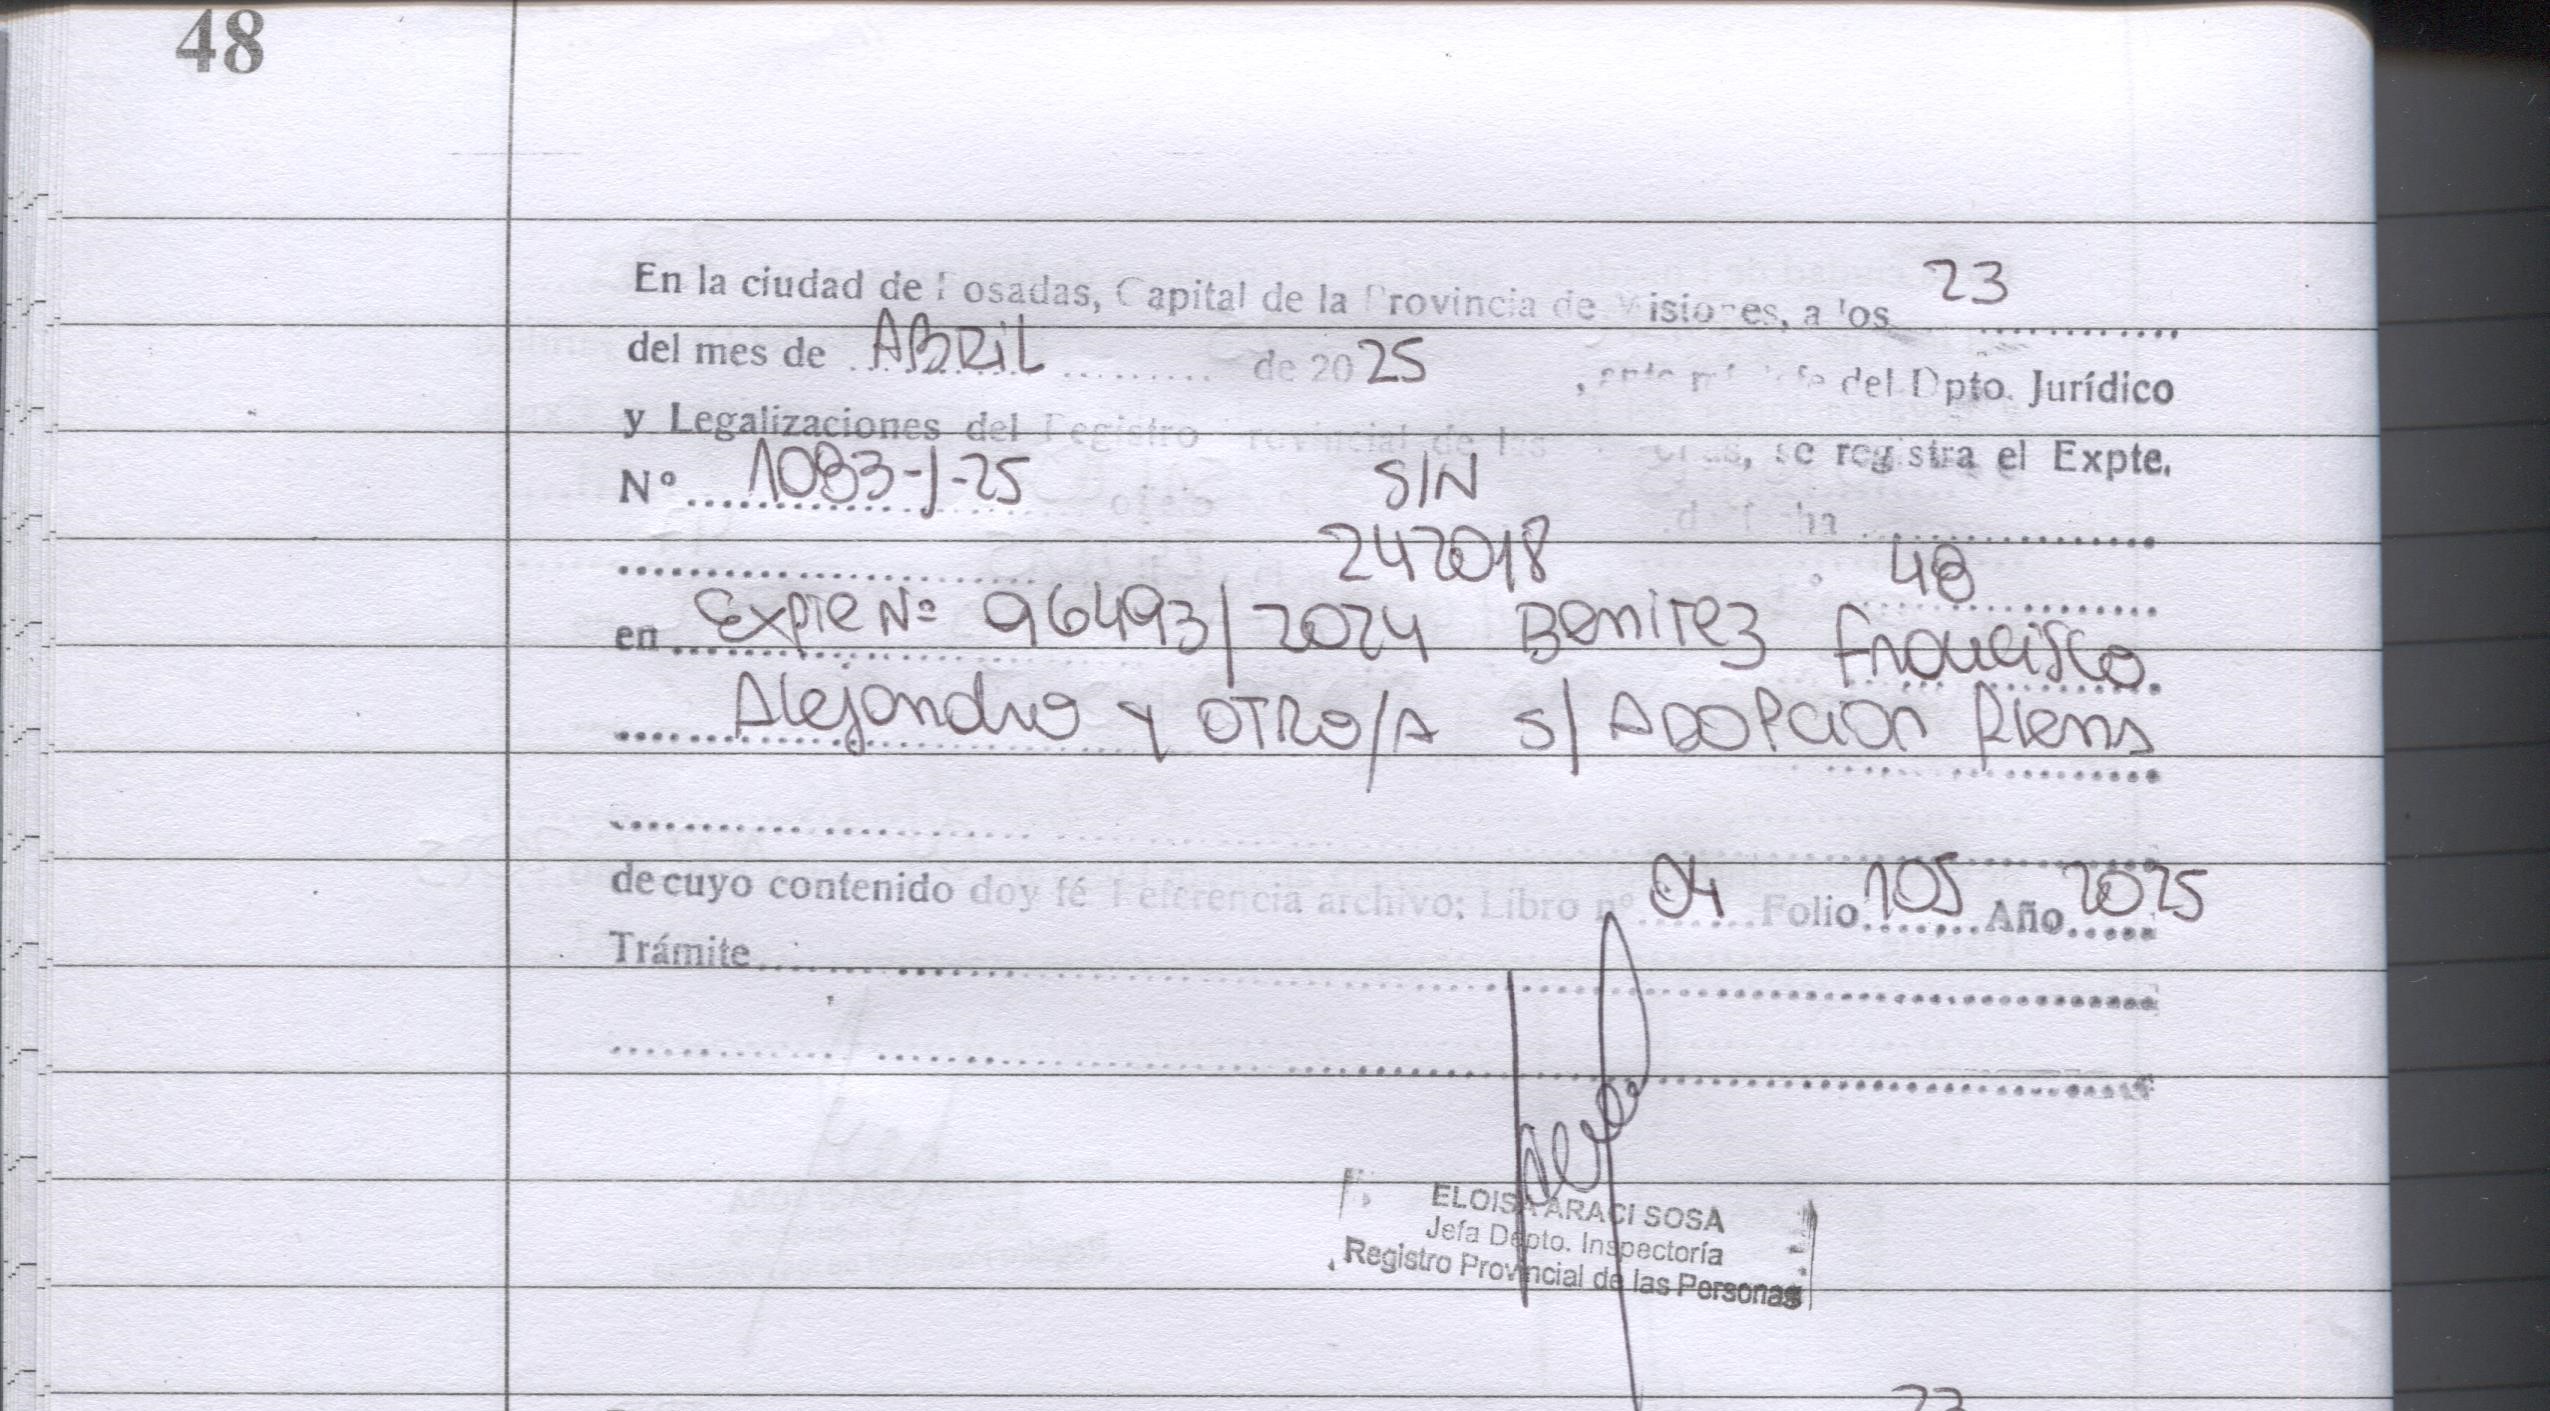 48
En la ciudad de Posadas, Capital de la Provincia de Misiones, a los 23
del mes de ABRIL de 2025, ante mí Jefe del Dpto. Jurídico
y Legalizaciones del Registro Provincial de las se registra el Expte.
Nº 1093-J-25 oficio S/N de fecha
242018 48
en Expte Nº 96493/2024 Benitez Francisco
Alejandro y OTRO/A S/ ADOPCION Plena
de cuyo contenido doy fé Referencia archivo: Libro nº 04 Folio 105 Año 2025
Trámite
ELOISA ARACI SOSA
Jefa Depto. Inspectoría
Registro Provincial de las Personas
23